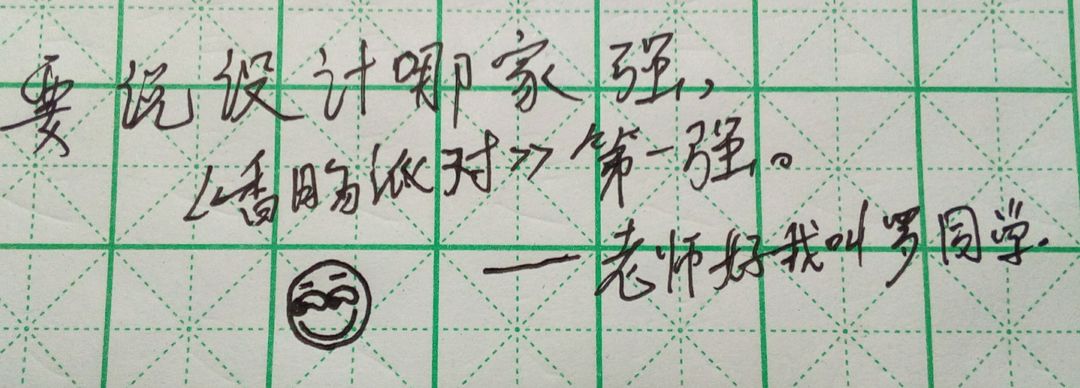 要说设计哪家强,
《香肠派对》第一强。
——老师好我叫罗同学.